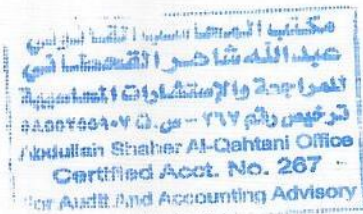 مكتب المحاسب القانوني
عبدالله شاهر القحطاني
للمراجعة والإستشارات المحاسبية
ترخيص رقم ٢٦٧ - س.ت
Abdullah Shaher Al-Qahtani Office
Certified Acct. No. 267
for Audit And Accounting Advisory